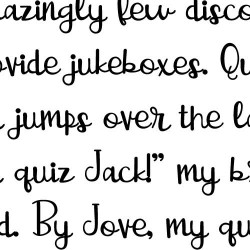 azingly few disco
ovide jukeboxes. Qu
jumps over the la
quiz Jack!” my br
d. By Jove, my qu